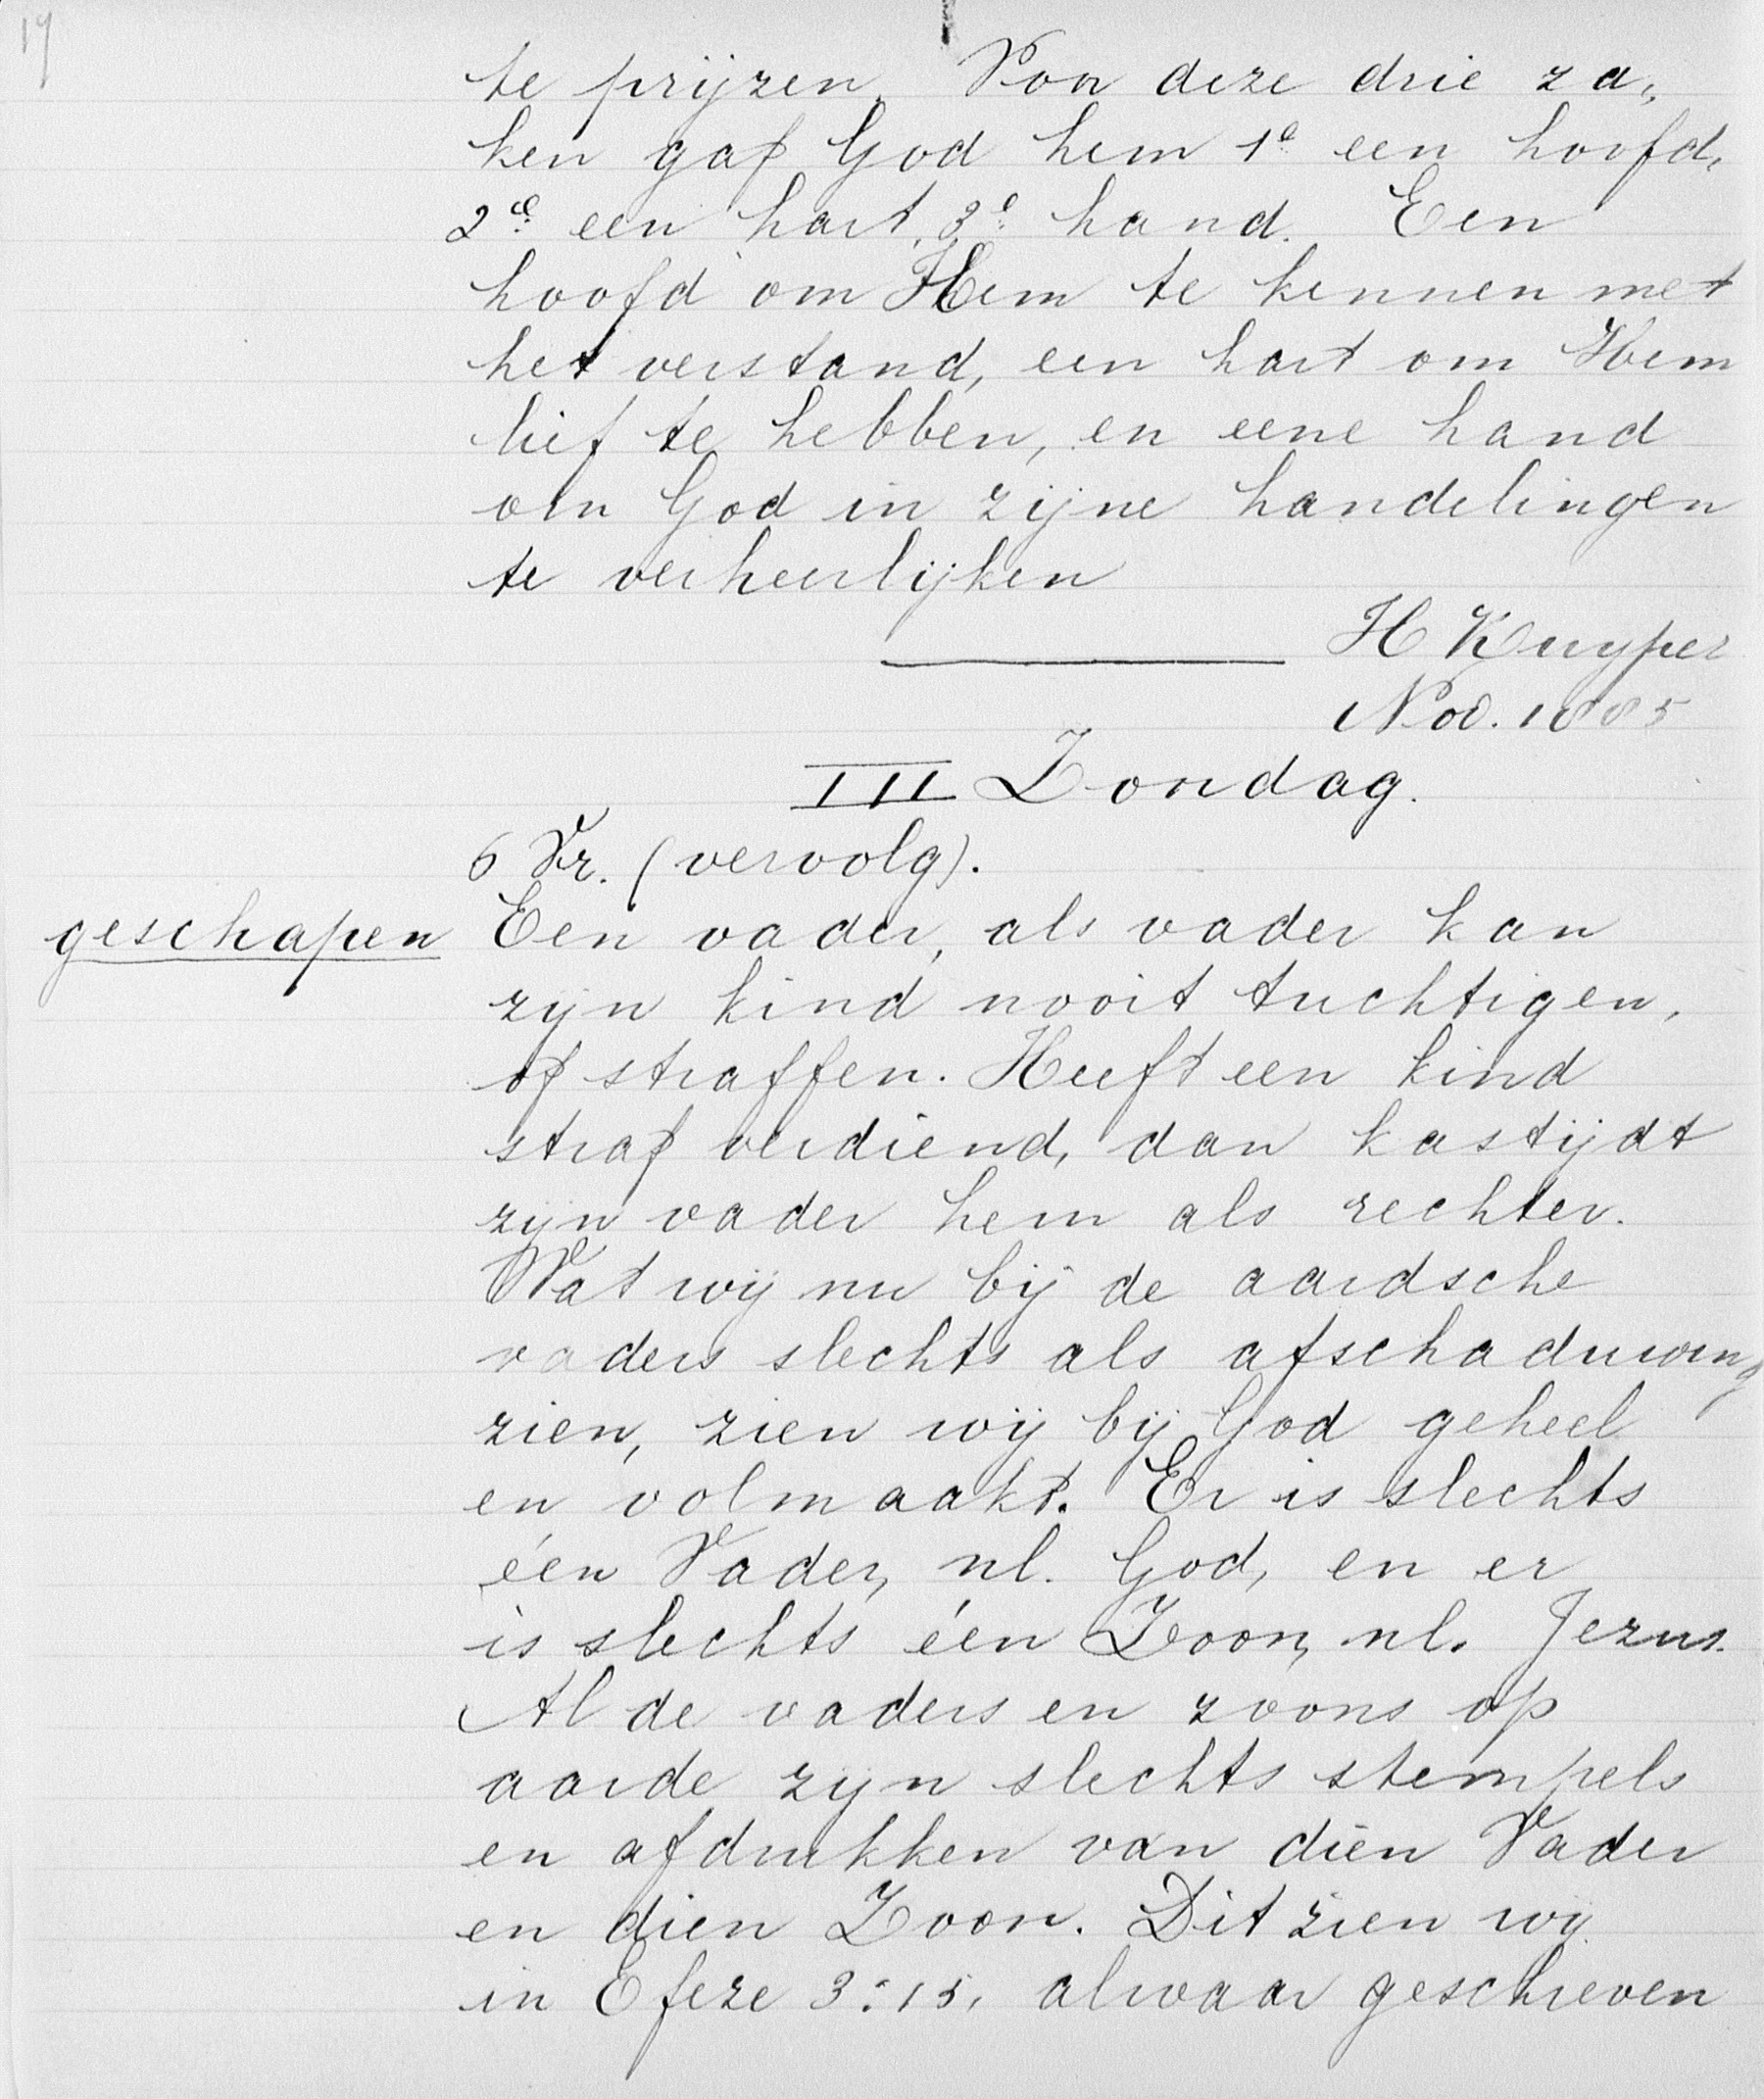 19
te prijzen. Voor deze drie za„
ken gaf God hem 1e een hoofd,
2e een hart, 3e hand. Een
hoofd om Hem te kennen met
het verstand, een hart om Hem
lief te hebben, en eene hand
om God in zijne handelingen
te verheerlijken
H Kuyper
Nov. 1885
III Zondag.
6 Vr. (vervolg).
geschapen Een vader, als vader kan
zijn kind nooit tuchtigen,
of straffen. Heeft een kind
straf verdiend, dan kastijdt
zijn vader hem als rechter.
Wat wij nu bij de aardsche
vaders slechts als afschaduwing
zien, zien wij bij God geheel
en volmaakt. Er is slechts
één Vader, nl. God, en er
is slechts één Zoon, nl. Jezus.
Al de vaders en zoons op
aarde zijn slechts stempels
en afdrukken van dien Vader
en dien Zoon. Dit zien wij
in Efeze 3:15, alwaar geschreven